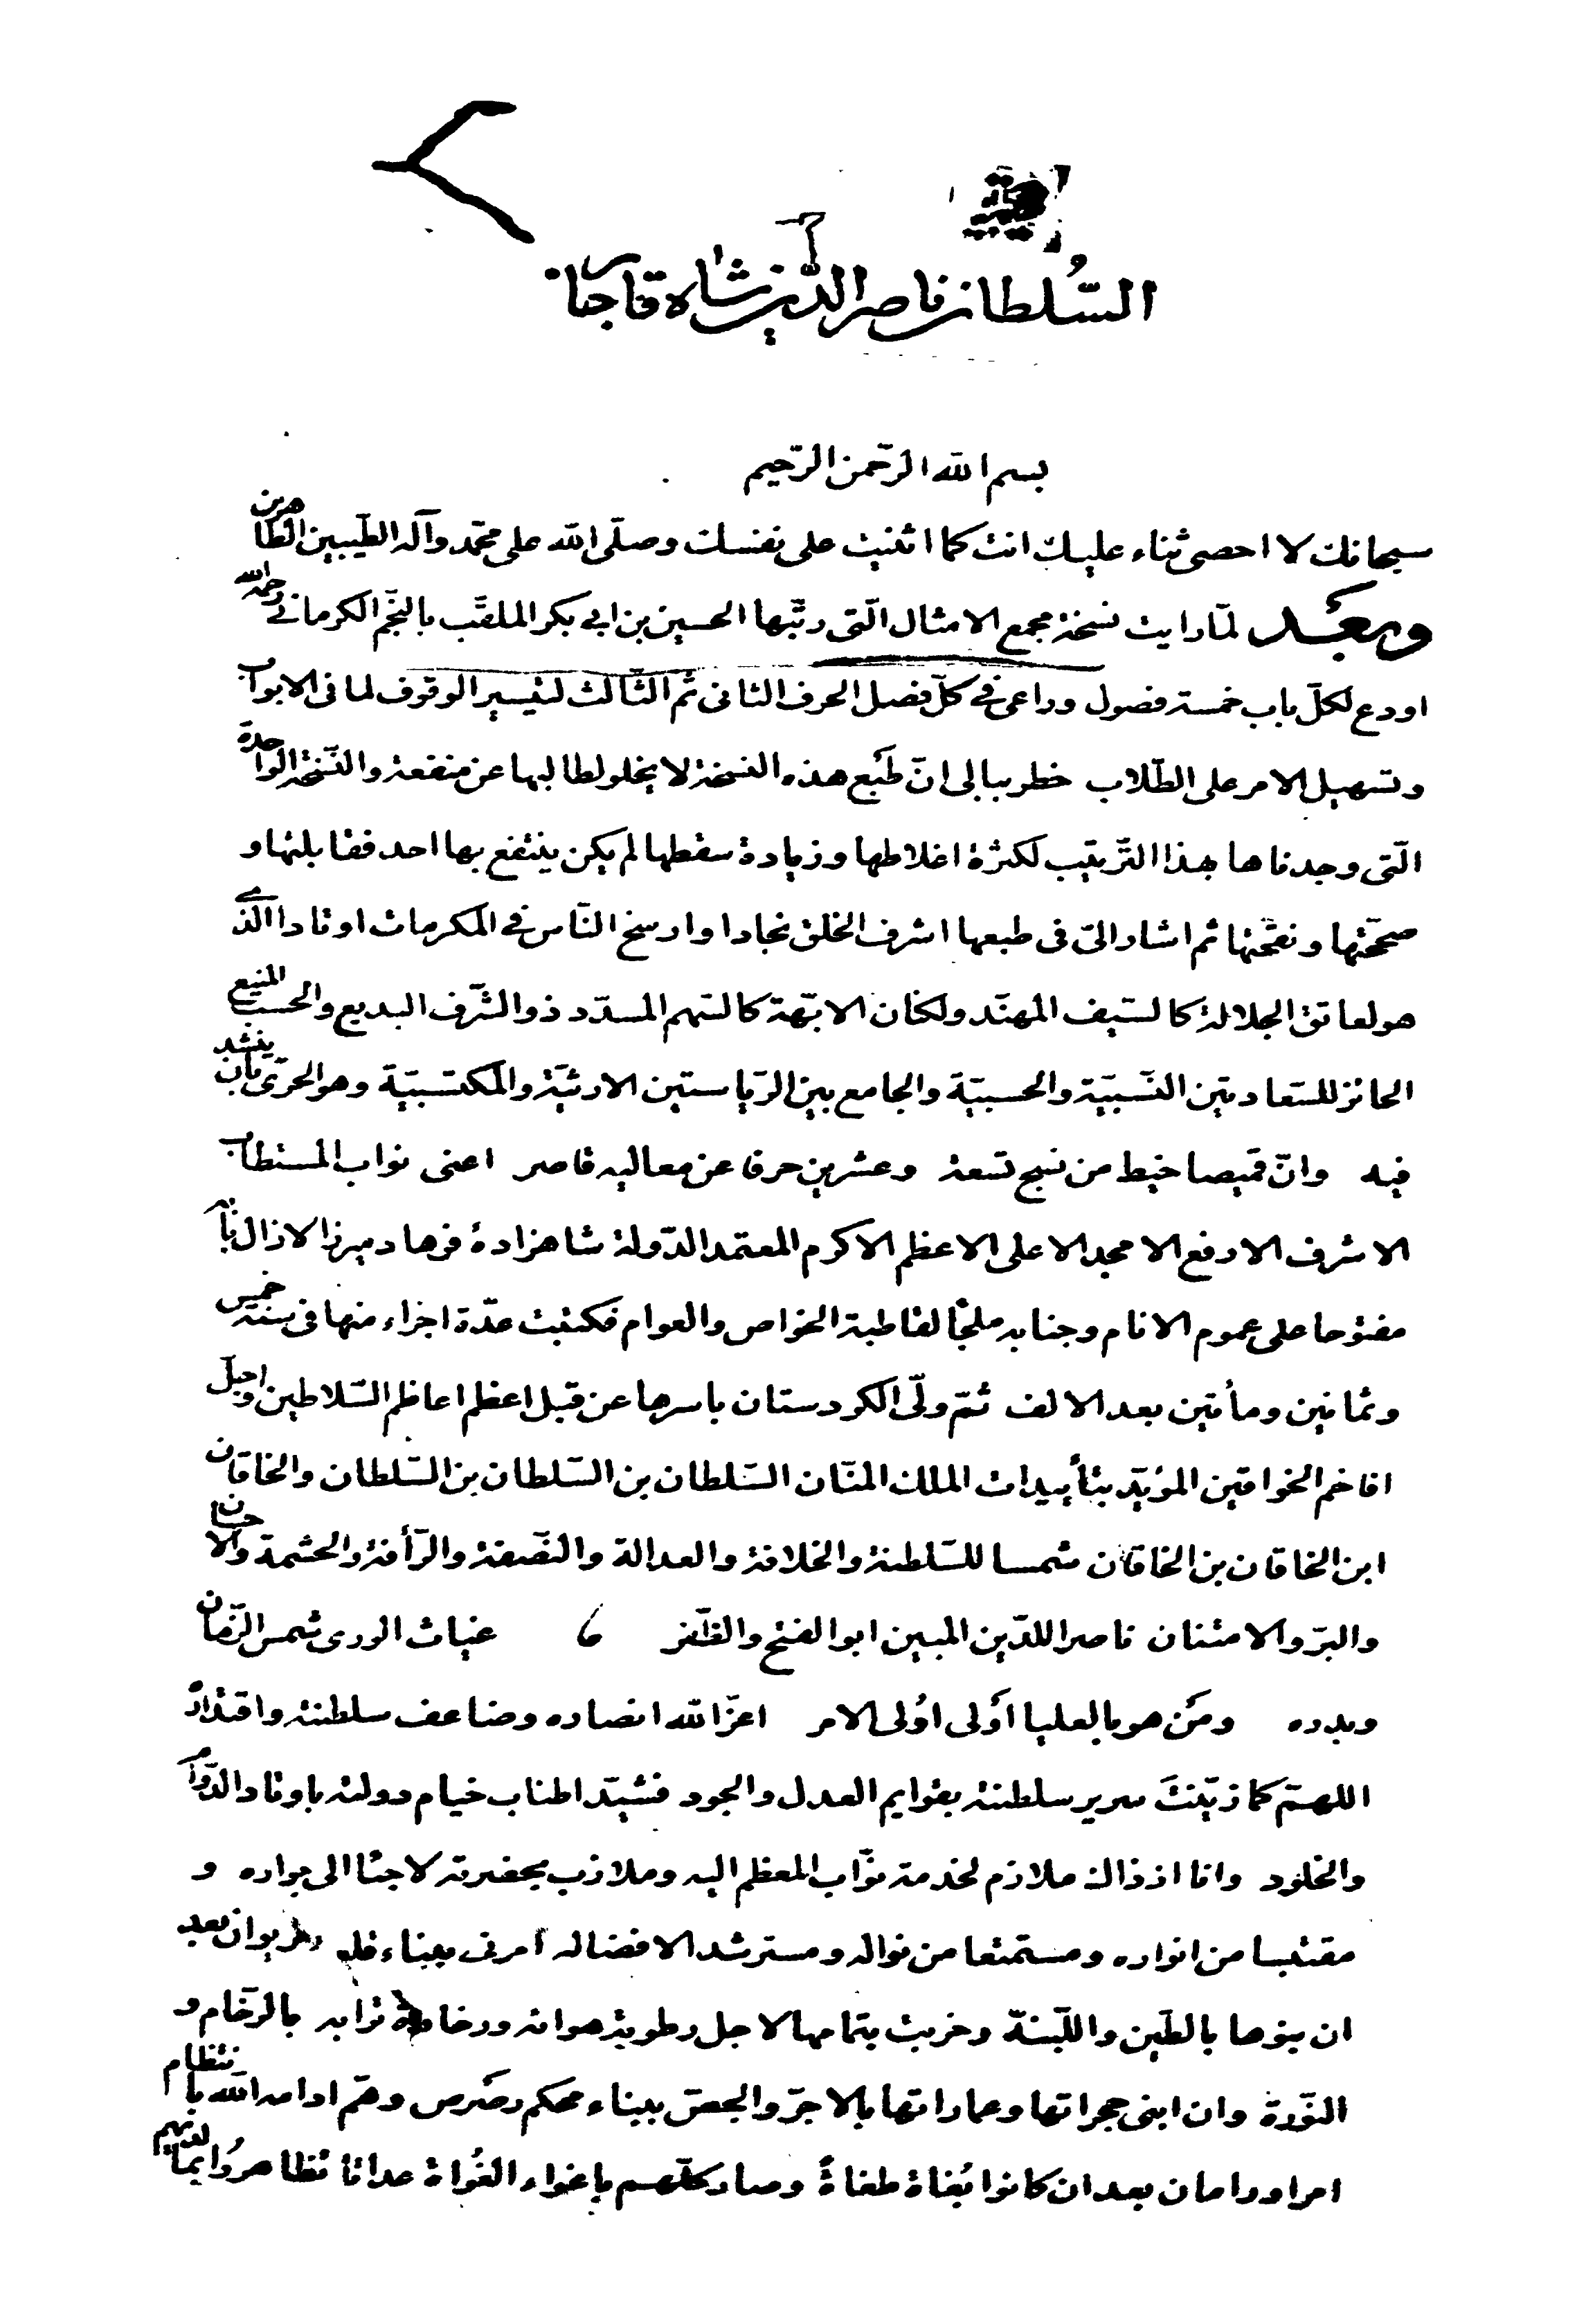 السّلطان ناصر الدّين شاه قاجار
بسم الله الرّحمن الرّحيم
سبحانك لا احصى ثناء عليك انت كما اثنيت على نفسك وصلّى الله على محمّد وآله الطيّبين الطاهرين
وبعد لمّا رايت نسخة مجمع الامثال الّتى رتّبها الحسين بن ابي بكر الملقّب بالنّجم الكرمانے رحمه الله
اودع لكلّ باب خمسة فصول وراعى في كلّ فصل الحرف الثانى ثم الثّالث لتيسير الوقوف لما فى الابواب
وتسهيل الامر على الطّلاب خطر ببالى انّ طبع هذه النسخة لا يخلو لطالبها عن منفعة والنّسخة الواحدة
الّتى وجدناها بهذا التّرتيب لكثرة اغلاطها وزيادة سقطها لم يكن ينتفع بها احد فقابلتها و
صحّحتها ونقّحتها ثم اشار الىّ فى طبعها اشرف الخلق نجادا وارسخ النّاس في المكرمات اوتادا الّذے
هو لعاتق الجلالة كالسّيف المهنّد ولكنان الابّهة كالسّهم المسدّد ذو الشّرف البديع والحسب المنيع
الحائز للسّعادتين النّسبيّة والحسبيّة والجامع بين الرّياستين الارثيّة والمكتسبيّة وهو الحرىّ بان ينشد
فيه وانّ قميصا خيط من نسج تسعة وعشرين حرفا عن معاليه قاصر اعنى نواب المستطاب
الاشرف الارفع الامجد الاعلى الاعظم الاكرم المعتمد الدّولة شاهزادۀ فرهاد ميرزا لازال بابه
مفتوحا على عموم الانام وجنابه ملجأ لقاطبة الخواص والعوام فكتبت عدّة اجزاء منها فى سنة خمس
وثمانين ومأتين بعد الالف ثمّ ولّى الكردستان باسرها عن قبل اعظم اعاظم السّلاطين واجلّ
افاخم الخواقين المؤيّد بتأييدات الملك المنّان السّلطان بن السّلطان بن السّلطان والخاقان
ابن الخاقان بن الخاقان شمسا للسّلطنة والخلافة والعدالة والنّصفة والرّأفة والحشمة والاحسان
والبرّ والامتنان ناصرا للدّين المبين ابو الفتح والظّفر غياث الورى شمس الزّمان
وبدره ومن هو بالعليا أولى اولى الامر اعزّ الله انصاره وضاعف سلطنته واقتداره
اللهمّ كما زيّنت سرير سلطنته بقوايم العدل والجود فشيّد اطناب خيام دولته باوتاد الدّوام
والخلود وانا اذ ذاك ملازم لخدمة نوّاب المعظم اليه وملازب بحضرته لاجئا الى جواره و
مقتبسا من انواره ومستمتعا من نواله ومسترشد الافضاله امرنى ببناء قلعة مريوان بعد
ان بنوها بالطّين واللّبنة وخربت بتمامها لاجل رطوبة هوائه ورخاوة ترابه بالرّخام و
النّورة وان ابنى حجراتها وعماراتها بالاجرّ والجصّ ببناء محكم رصرص وهمّ ادامه الله بانتظام
امر اورامان بعد ان كانوا بُغاة طغاةً وصار كلّهم باغواء الغُواة عداتا تظاهرُوا